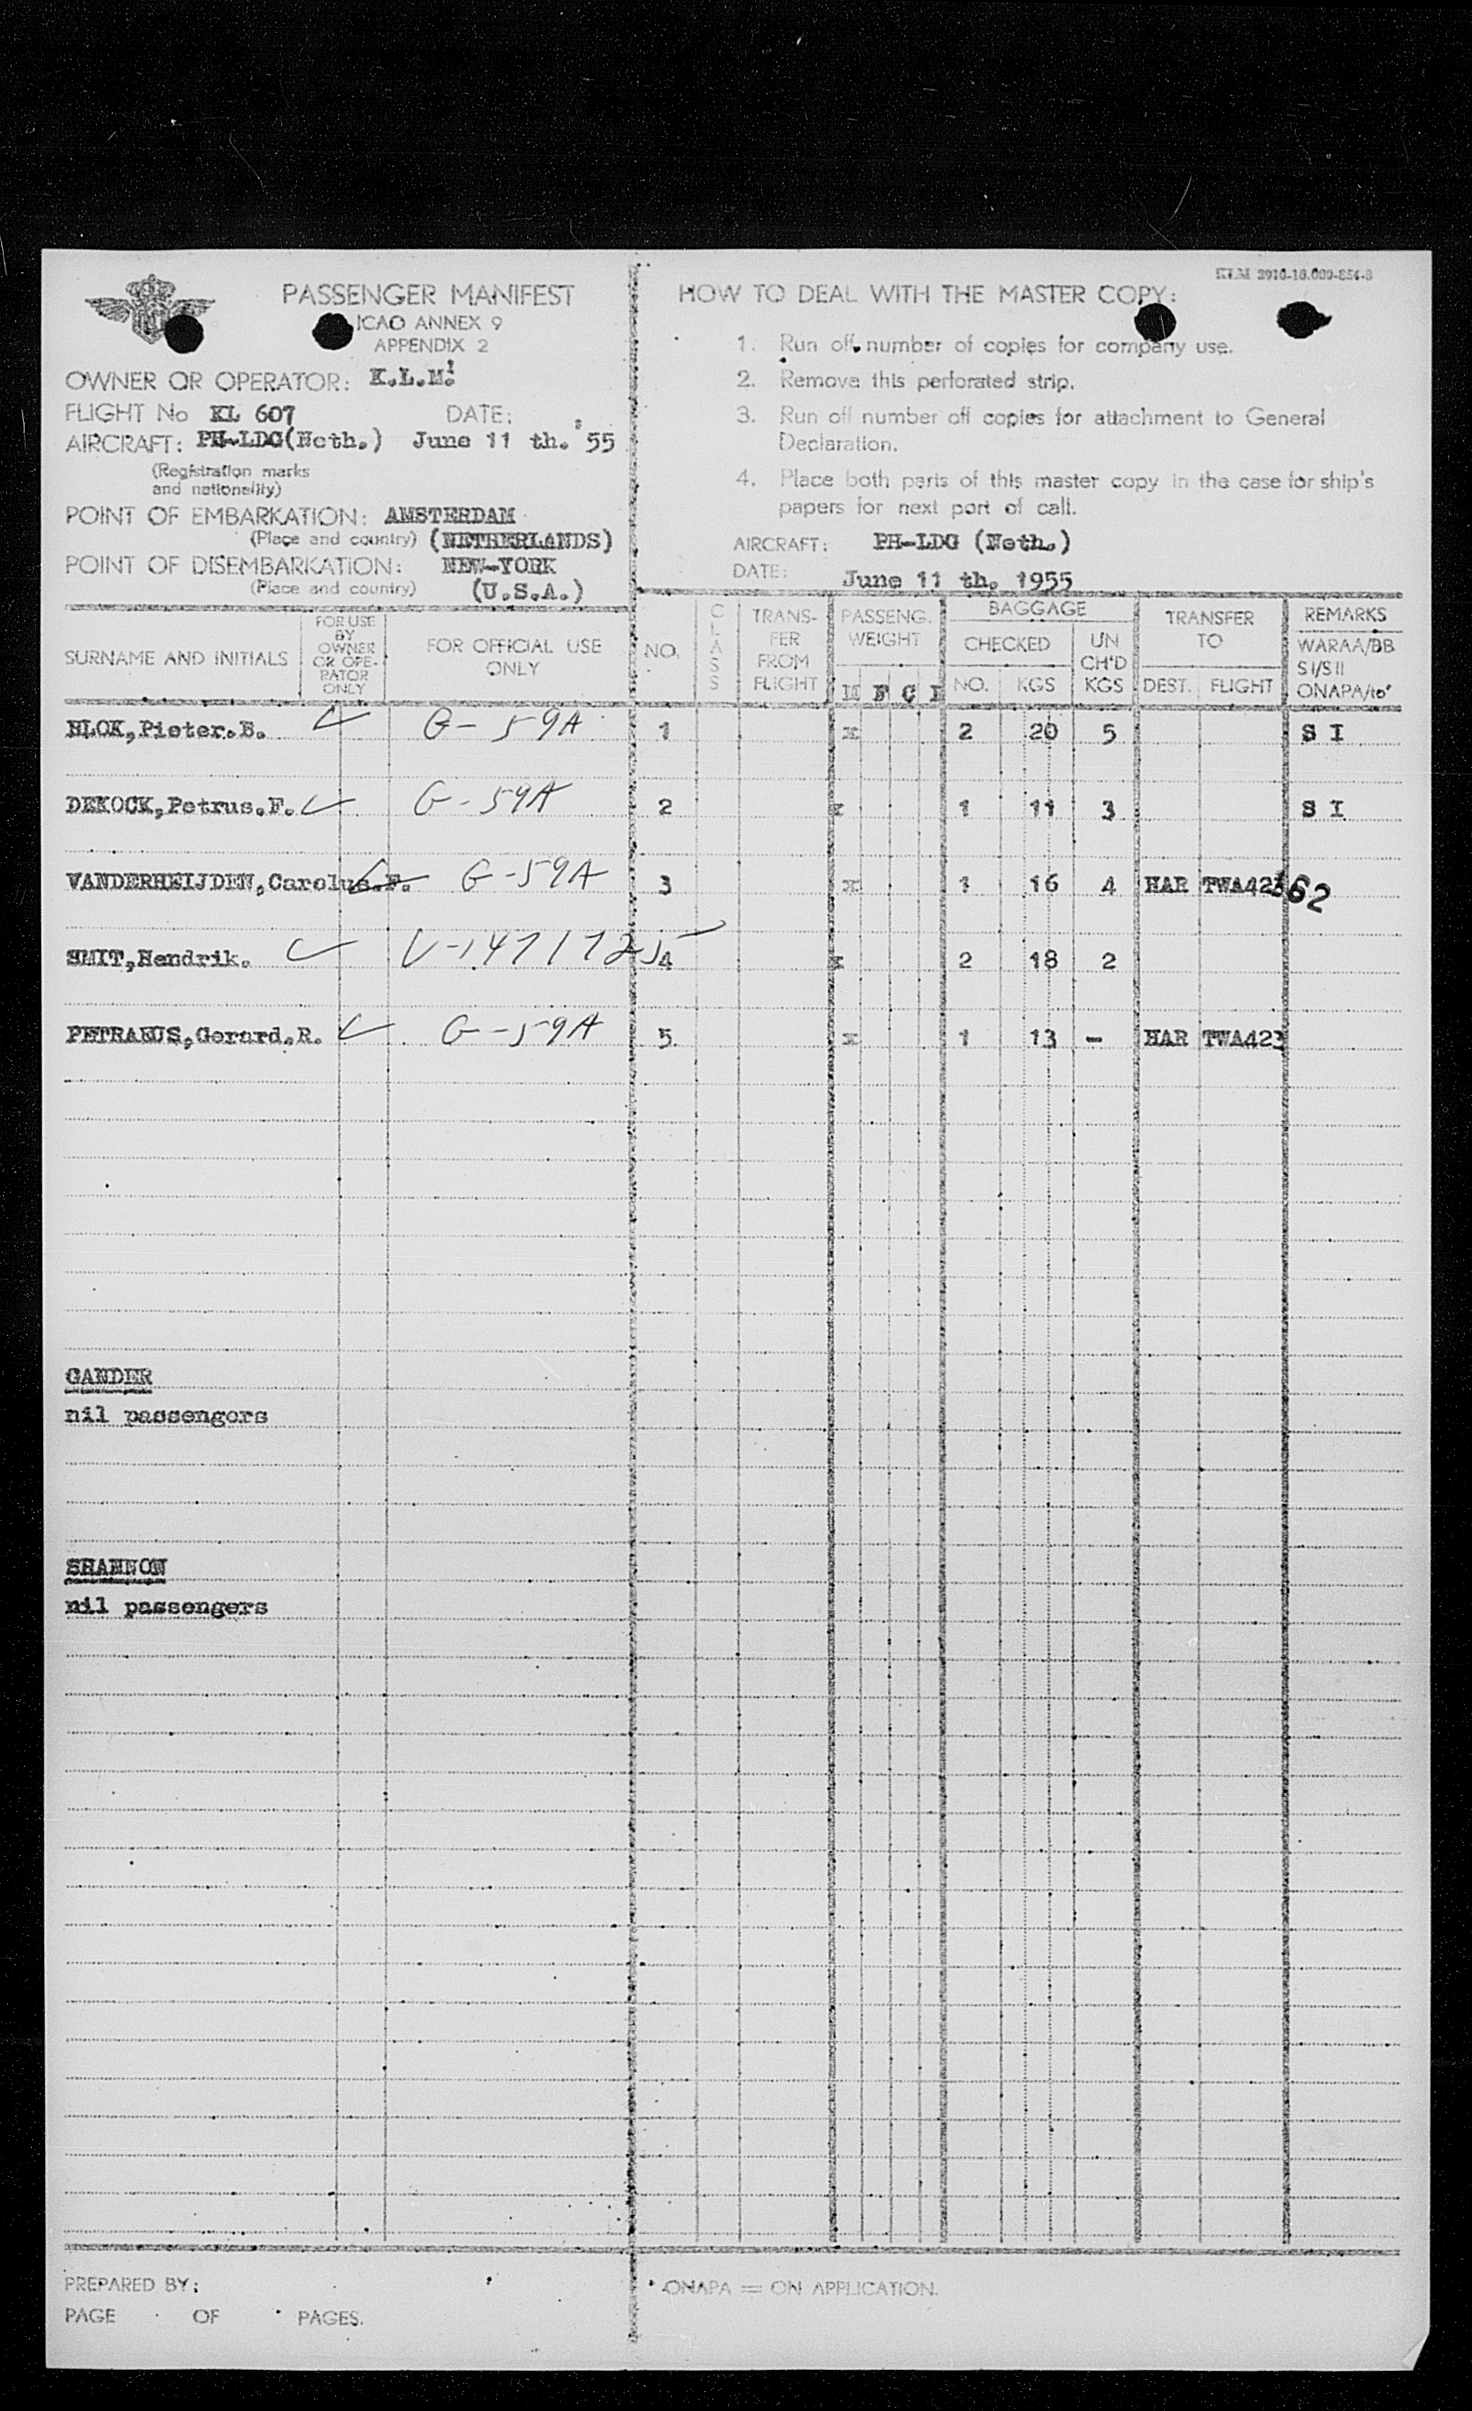 KLM 2916-10.000-854-3
PASSENGER MANIFEST
ICAO ANNEX 9
APPENDIX 2
OWNER OR OPERATOR: K.L.M.
FLIGHT No KL 607 DATE:
AIRCRAFT: PH-LDG(Neth.) June 11 th. '55
(Registration marks
and nationality)
POINT OF EMBARKATION: AMSTERDAM
(Place and country) (NETHERLANDS)
POINT OF DISEMBARKATION: NEW-YORK
(Place and country) (U.S.A.)
HOW TO DEAL WITH THE MASTER COPY:
1. Run off number of copies for company use.
2. Remove this perforated strip.
3. Run off number off copies for attachment to General
Declaration.
4. Place both parts of this master copy in the case for ship's
papers for next port of call.
AIRCRAFT: PH-LDG (Neth.)
DATE: June 11 th. 1955
SURNAME AND INITIALS
FOR USE
BY
OWNER
OR OPE-
RATOR
ONLY
FOR OFFICIAL USE
ONLY
NO.
CLASS
TRANS-
FER
FROM
FLIGHT
PASSENG.
WEIGHT
M F C I
BAGGAGE
CHECKED
NO. KGS
UN
CH'D
KGS
TRANSFER
TO
DEST. FLIGHT
REMARKS
WARAA/BB
SI/SII
ONAPA/to*
BLOK,Pieter.B. G-59A 1 x 2 20 5 S I
DEKOCK,Petrus.F. G-59A 2 x 1 11 3 S I
VANDERHEIJDEN,Carolus.F. G-59A 3 x 1 16 4 HAR TWA423 62
SMIT,Hendrik. V-1471725 4 x 2 18 2
PETRAEUS,Gerard.R. G-59A 5. x 1 13 - HAR TWA423
GANDER
nil passengers
SHANNON
nil passengers
PREPARED BY:
PAGE OF PAGES.
* ONAPA = ON APPLICATION.